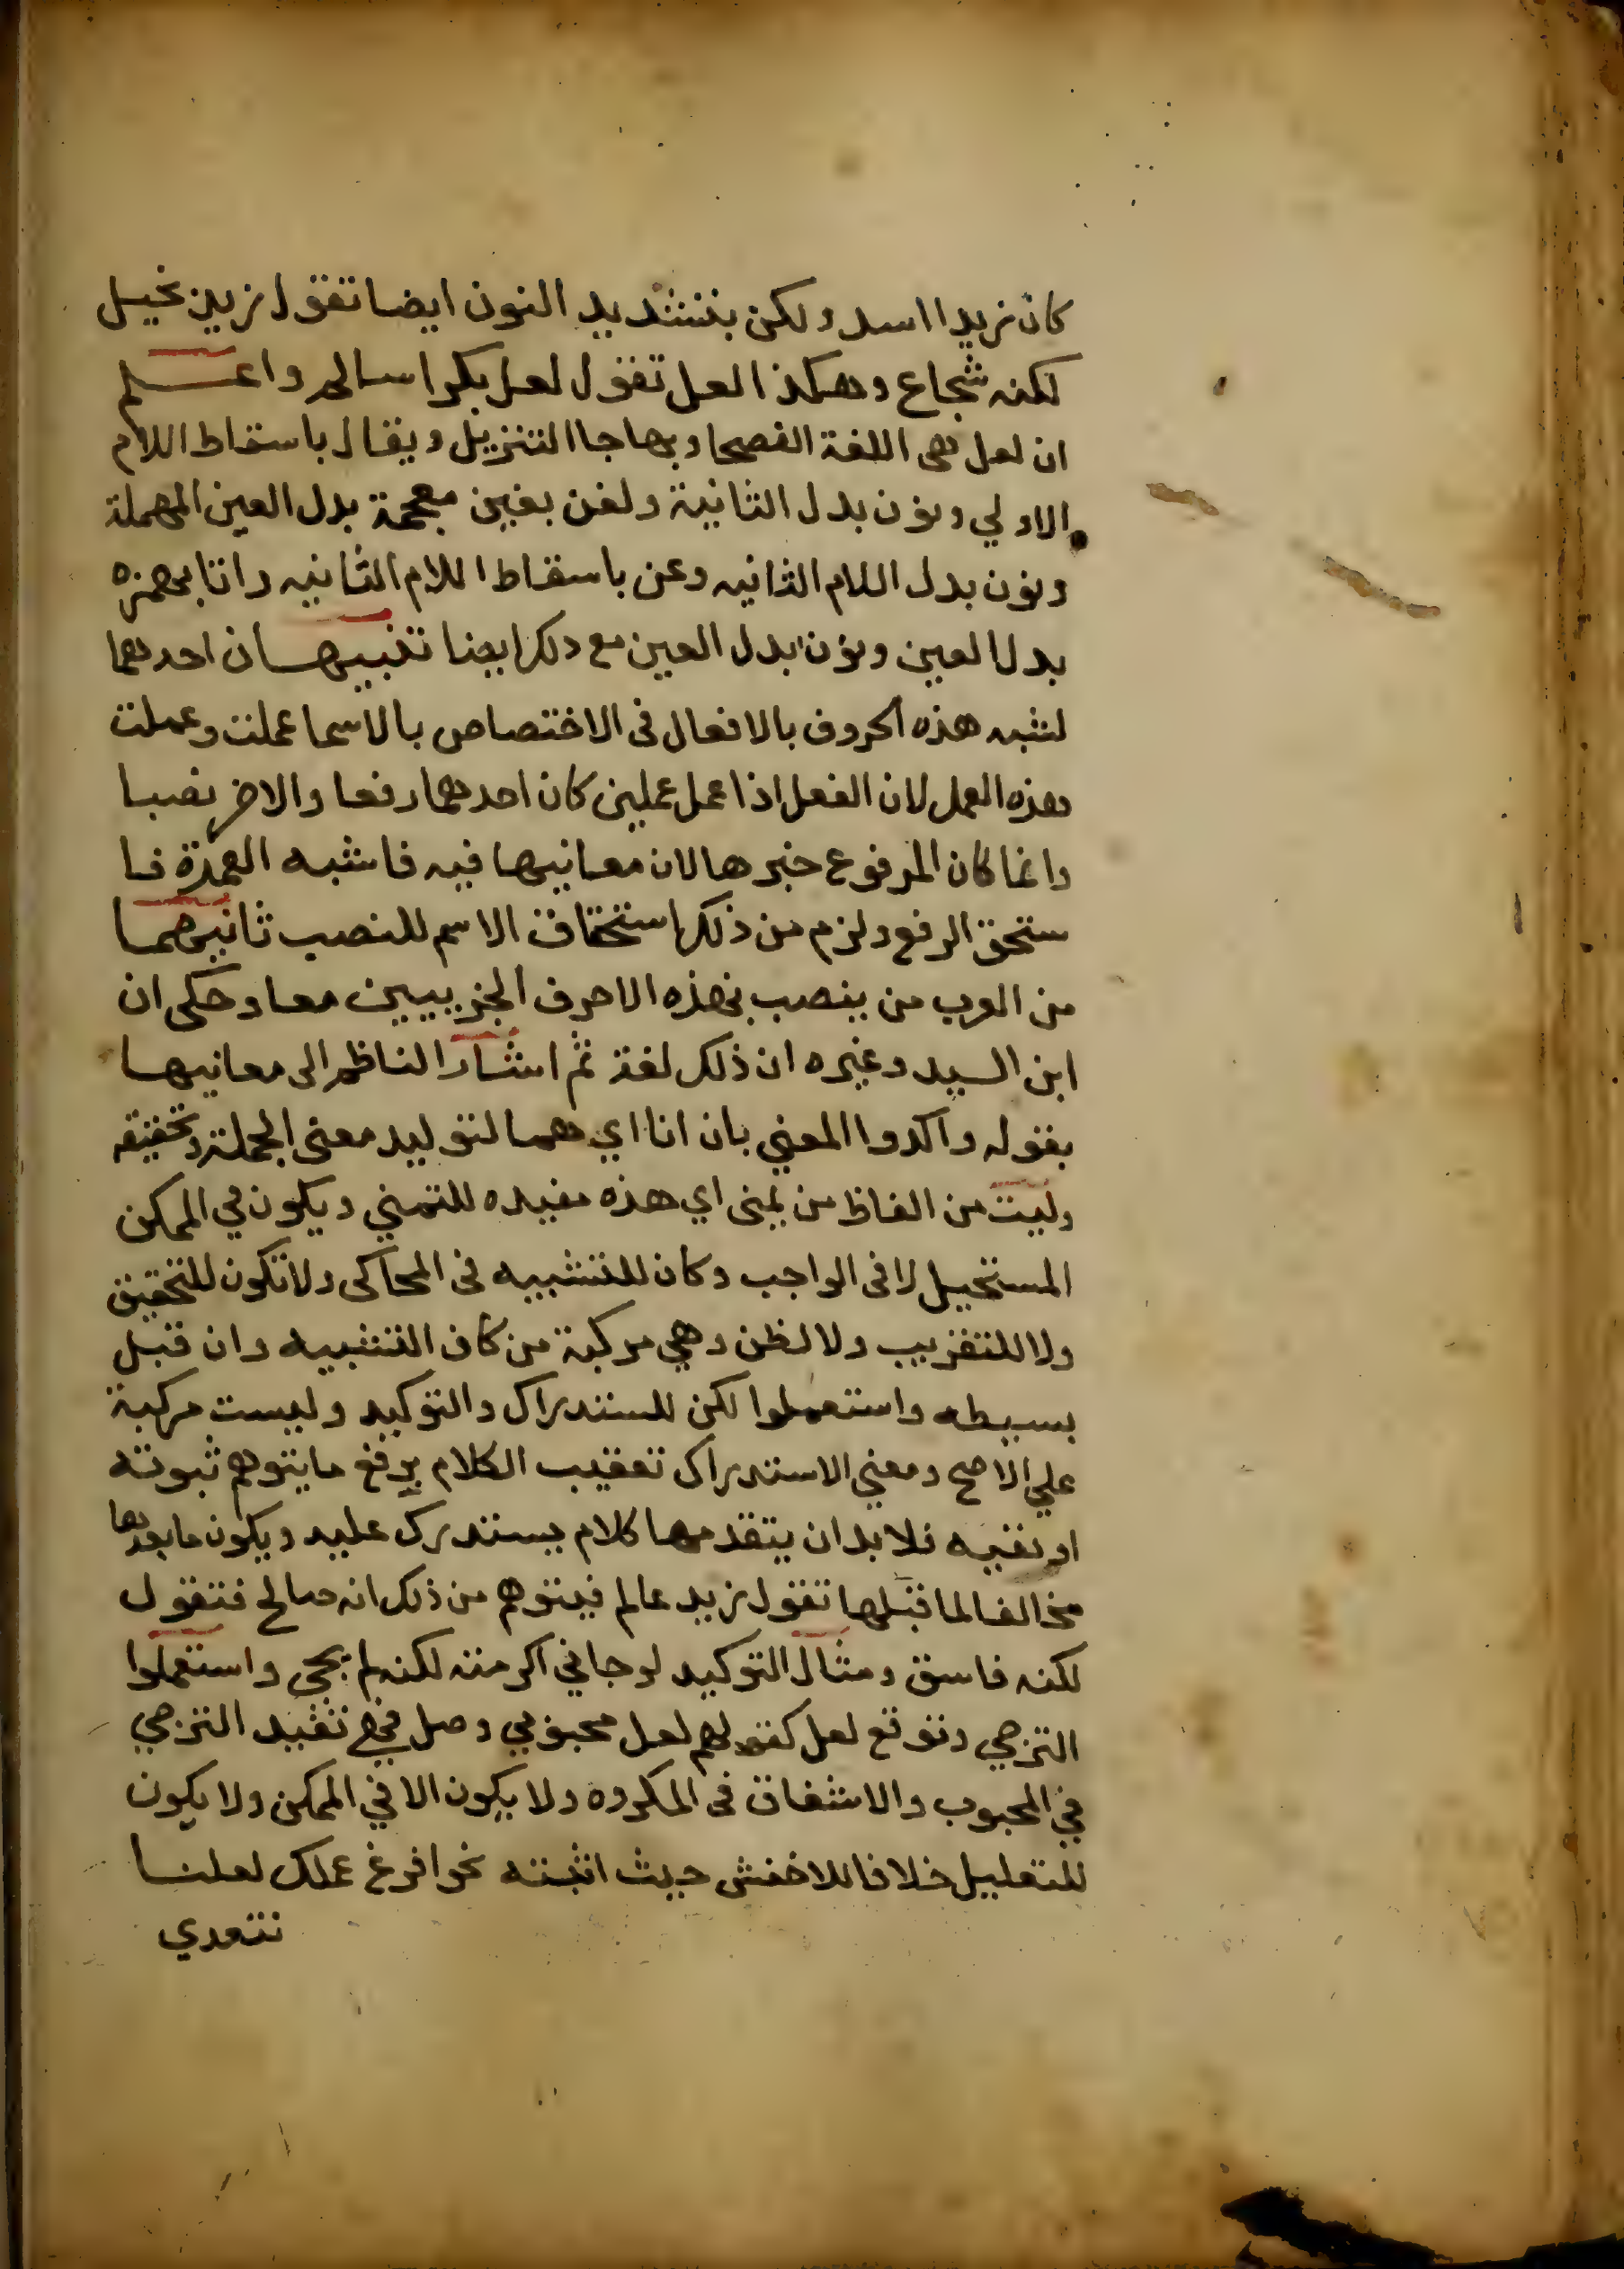 كان زيدا اسد ولكن بتشديد النون ايضا تقول زيد بخيل
لكنه شجاع وهكذا لعل تقول لعل بكرا سالم واعلم
ان لعل هى اللغة الفصحا وبها جا التنزيل ويقال باسقاط اللام
الاولي ونون بدل الثانية ولغن بغين معجمة بدل العين المهملة
ونون بدل اللام الثانيه وعن باسقاط اللام الثانيه وانا بهمزه
بدل العين ونون بدل العين مع ذلك ايضا تنبيهان احدهما
لشبه هذه الحروف بالافعال فى الاختصاص بالاسما عملت وعملت
هذه العمل لان الفعل اذا عمل عملين كان احدهما رفعا والاخر نصبا
وانما كان المرفوع خبرها لان معانيها فيه فاشبه العمدة فا
ستحق الرفع ولزم من ذلك استحقاق الاسم للنصب ثانيهما
من العرب من ينصب بهذه الاحرف الجزييين معا وحكى ان
ابن السيد وغيره ان ذلك لغة ثم اشار الناظم الى معانيها
بقوله واكدوا المعني بان انا اي هما لتوليد معنى الجملة وتحقيقه
وليت من الفاظ من يمنى اي هذه مفيده للتمني ويكون في الممكن
المستحيل لا فى الواجب وكان للتشبيه فى المحاكى ولا تكون للتحقيق
ولا للتقريب ولا لظن وهي مركبة من كاف التشبيه وان قيل
بسيطه واستعملوا لكن للستدراك والتوكيد وليست مركبة
علي الاصح ومعني الاستدراك تعقيب الكلام برفع ما يتوهم ثبوته
او نفيه فلا بد ان يتقدمها كلام يستدرك عليه ويكون ما بعدها
مخالفا لما قبلها تقول زيد عالم فيتوهم من ذلك انه صالح فتقول
لكنه فاسق ومثال التوكيد لو جاني اكرمته لكنه لم يجى واستعملوا
الترجي وتوقع لعل كقولهم لعل محبوبي وصل فهي تفيد الترجي
في المحبوب والاشفاق فى المكروه ولا يكون الا في الممكن ولا يكون
للتعليل خلافا للاخفش حيث اثبته نحو افرغ عملك لعلنا
نتعدي